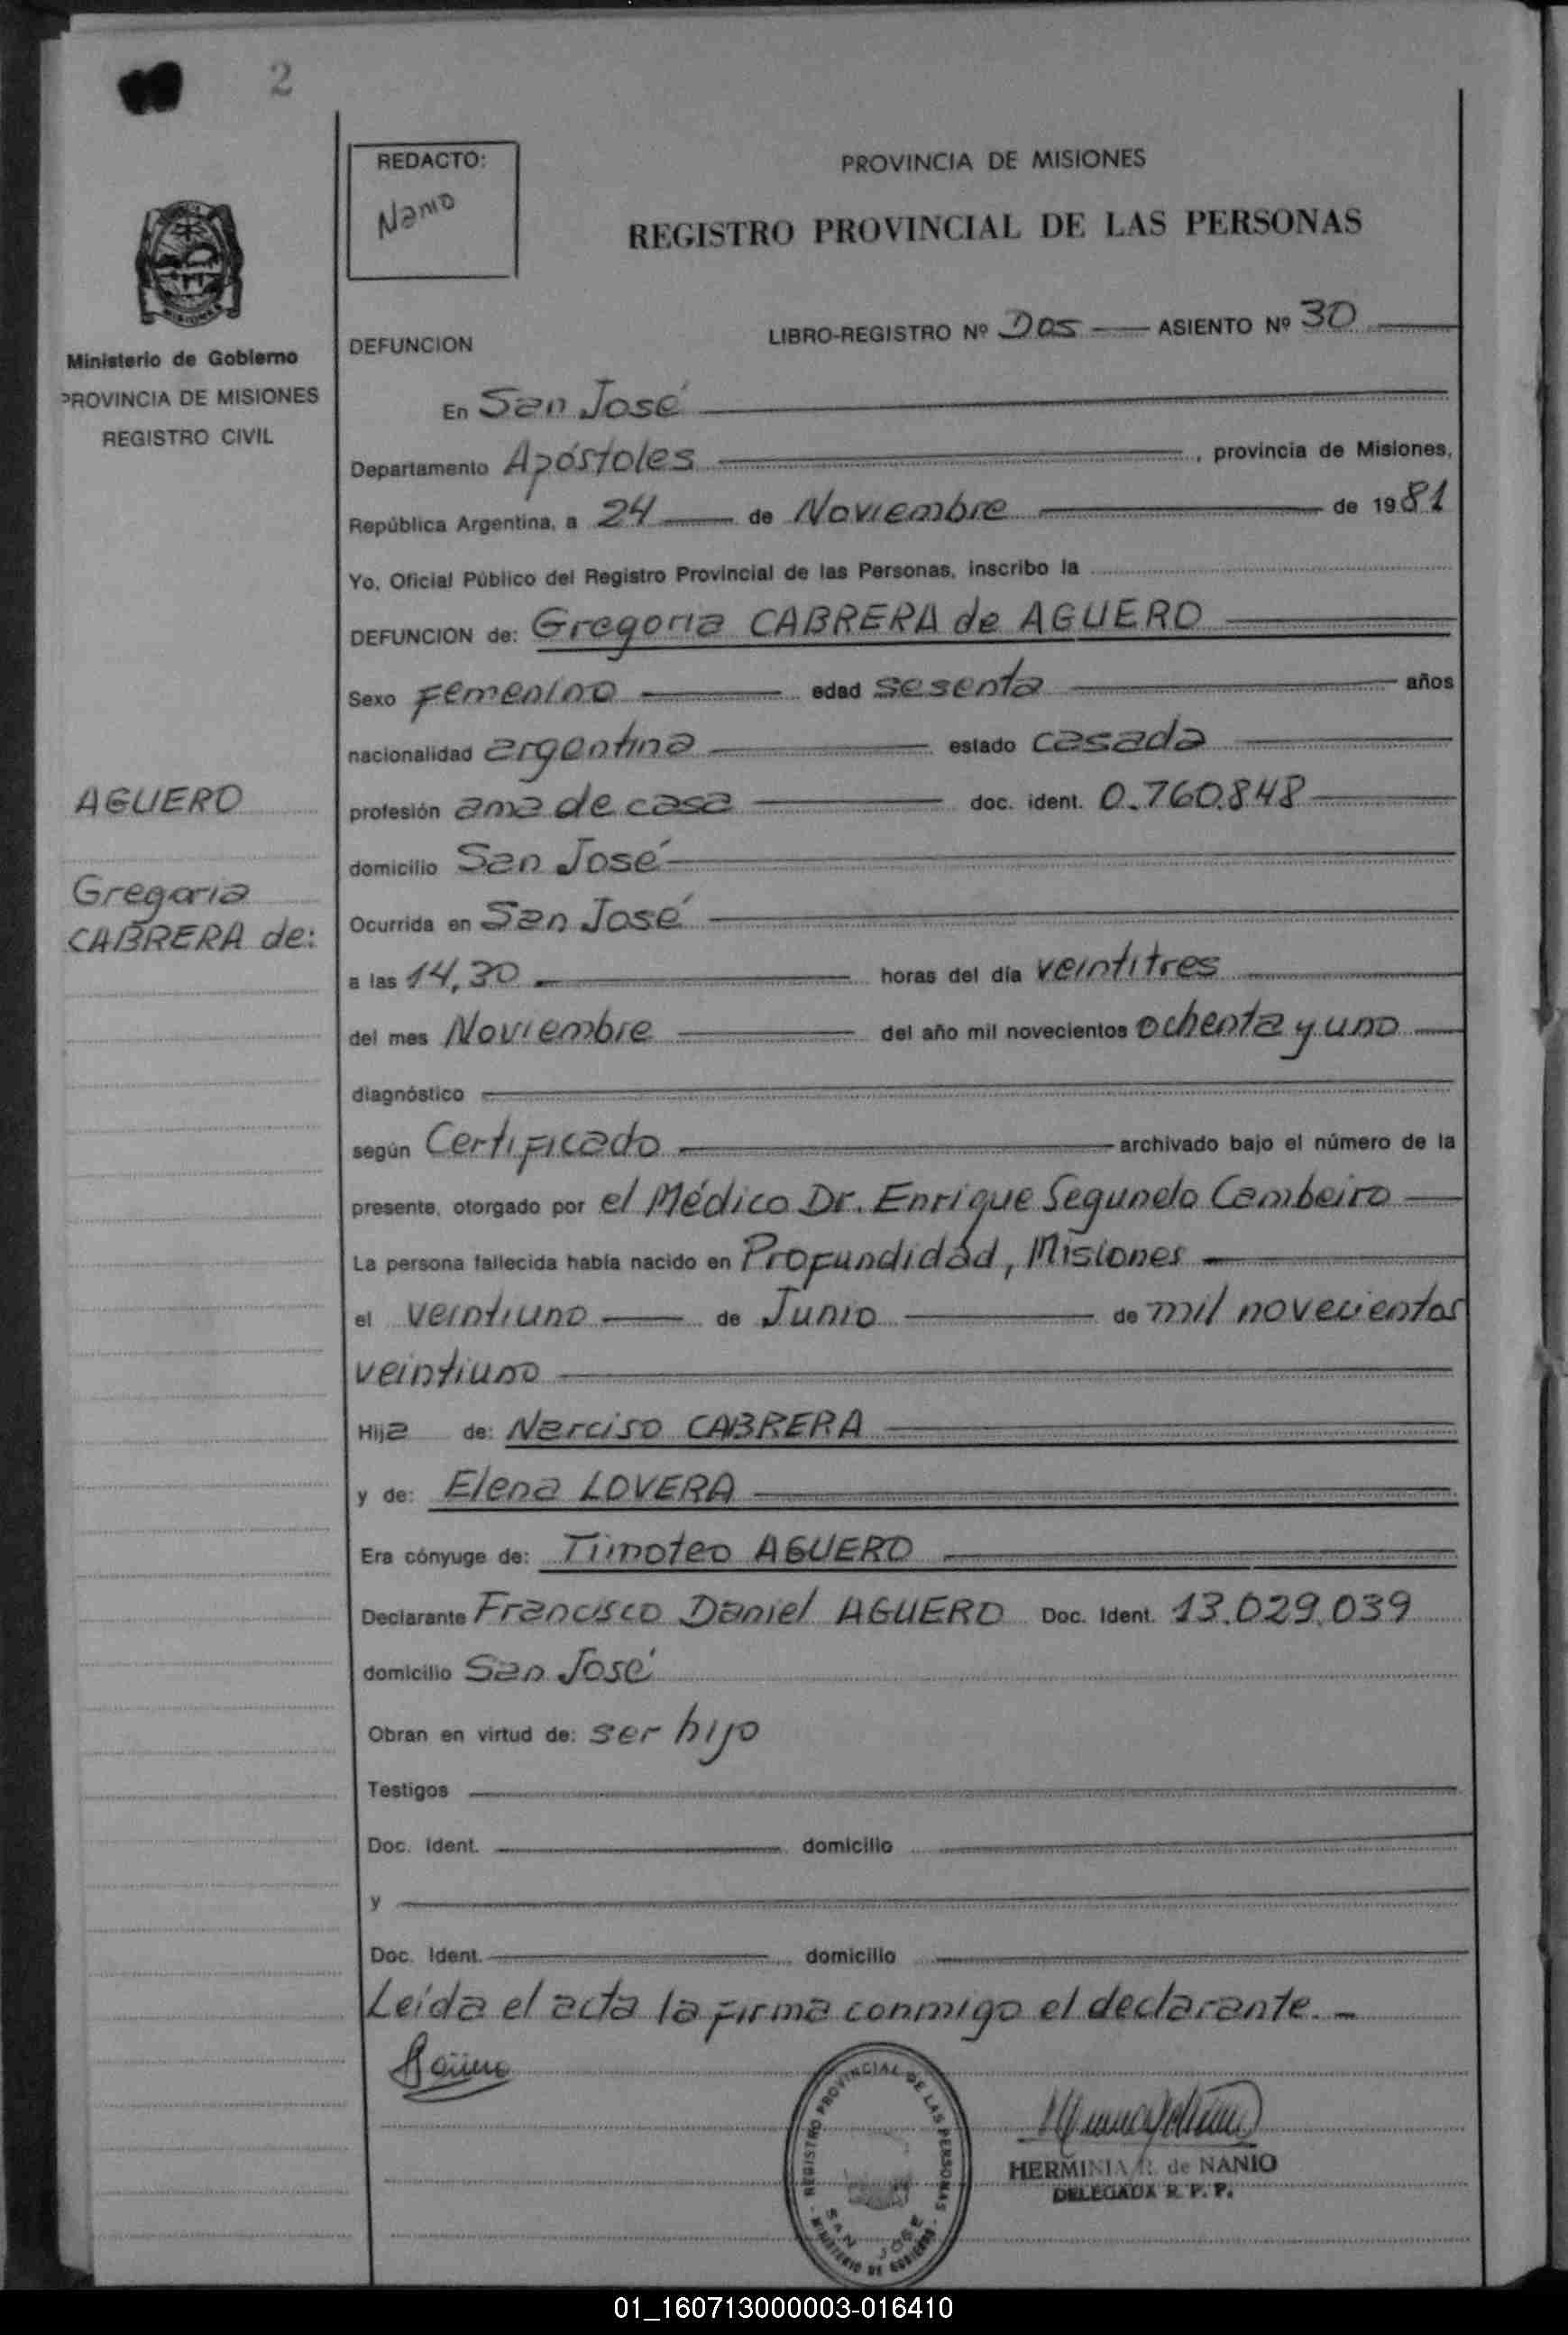 2
REDACTO:
Nanio
PROVINCIA DE MISIONES
REGISTRO PROVINCIAL DE LAS PERSONAS
MISIONES
Ministerio de Gobierno
PROVINCIA DE MISIONES
REGISTRO CIVIL
DEFUNCION
LIBRO-REGISTRO Nº Dos ASIENTO Nº 30
En San José
Departamento Apóstoles, provincia de Misiones,
República Argentina, a 24 de Noviembre de 1981
Yo, Oficial Público del Registro Provincial de las Personas, inscribo la
DEFUNCION de: Gregoria CABRERA de AGUERO
Sexo Femenino edad sesenta años
nacionalidad argentina estado casada
AGUERO
profesión ama de casa doc. ident. 0.760.848
domicilio San José
Gregoria
CABRERA de:
Ocurrida en San José
a las 14,30 horas del día veintitres
del mes Noviembre del año mil novecientos ochenta y uno
diagnóstico
según Certificado archivado bajo el número de la
presente, otorgado por el Médico Dr. Enrique Segundo Cambeiro
La persona fallecida había nacido en Profundidad, Misiones
el veintiuno de Junio de mil novecientos
veintiuno
Hija de: Narciso CABRERA
y de: Elena LOVERA
Era cónyuge de: Timoteo AGUERO
Declarante Francisco Daniel AGUERO Doc. Ident. 13.029.039
domicilio San José
Obran en virtud de: ser hijo
Testigos
Doc. Ident. domicilio
y
Doc. Ident. domicilio
Leída el acta la firma conmigo el declarante. -
Agüero
REGISTRO PROVINCIAL DE LAS PERSONAS
SAN JOSE
MINISTERIO DE GOBIERNO
HERMINIA R. de NANIO
DELEGADA R. P. P.
01_160713000003-016410